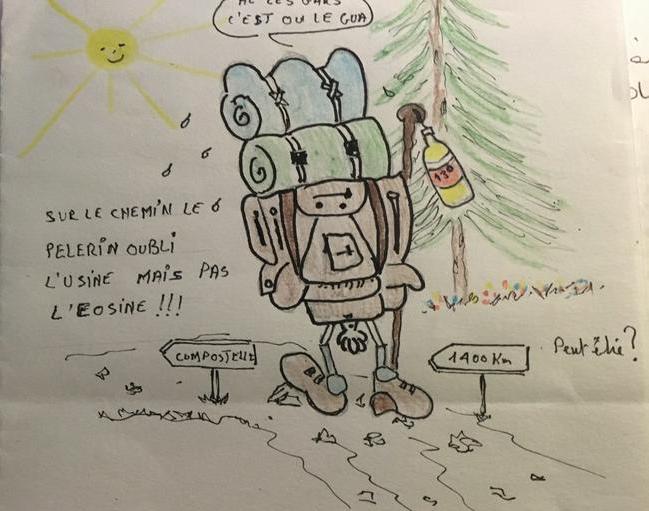 C'EST OU LE GUA
130
SUR LE CHEMIN LE
PELERIN OUBLI
L'USINE MAIS PAS
L'EOSINE !!!
COMPOSTELLE
1400 Km
Peut être?
à